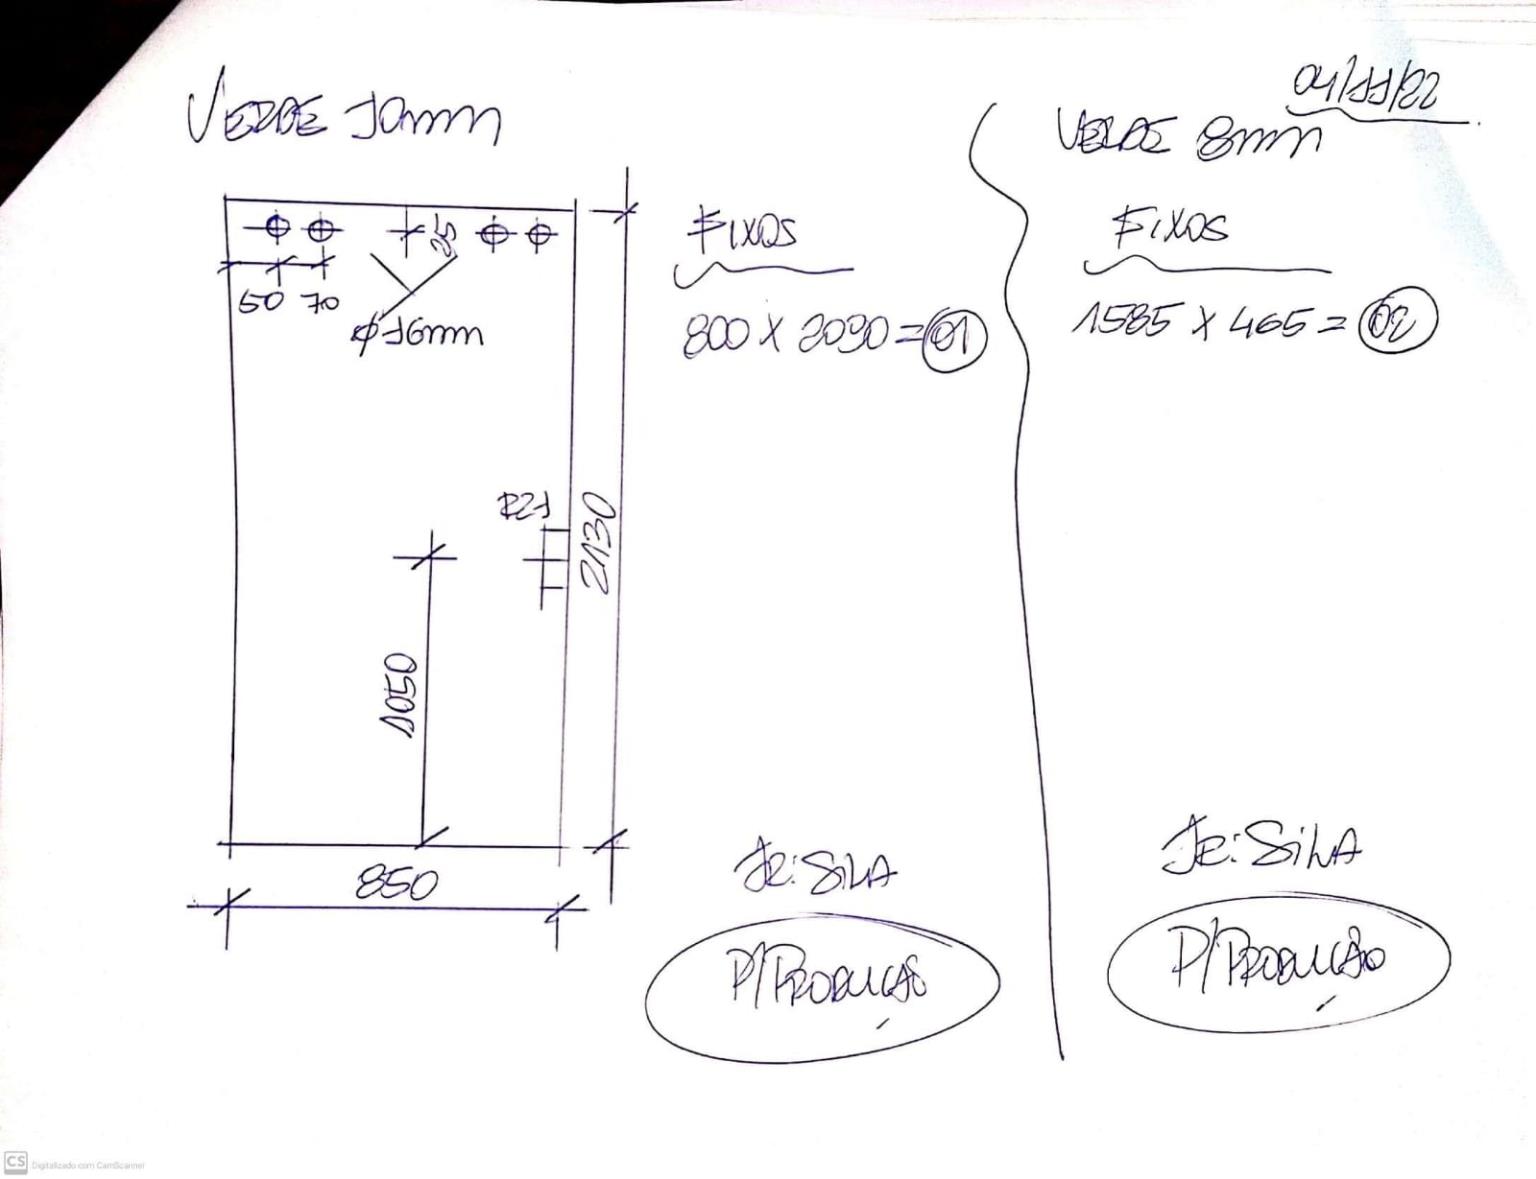 04/11/22
VERDE 10mm
50 70
25
Ø 16mm
R21
2130
1050
850
FIXOS
800 X 2090 = 01
Jr: SiLA
P/PRODUÇÃO
VERDE 8mm
FIXOS
1585 X 465 = 02
Jr: SiLA
P/PRODUÇÃO
CS Digitalizado com CamScanner